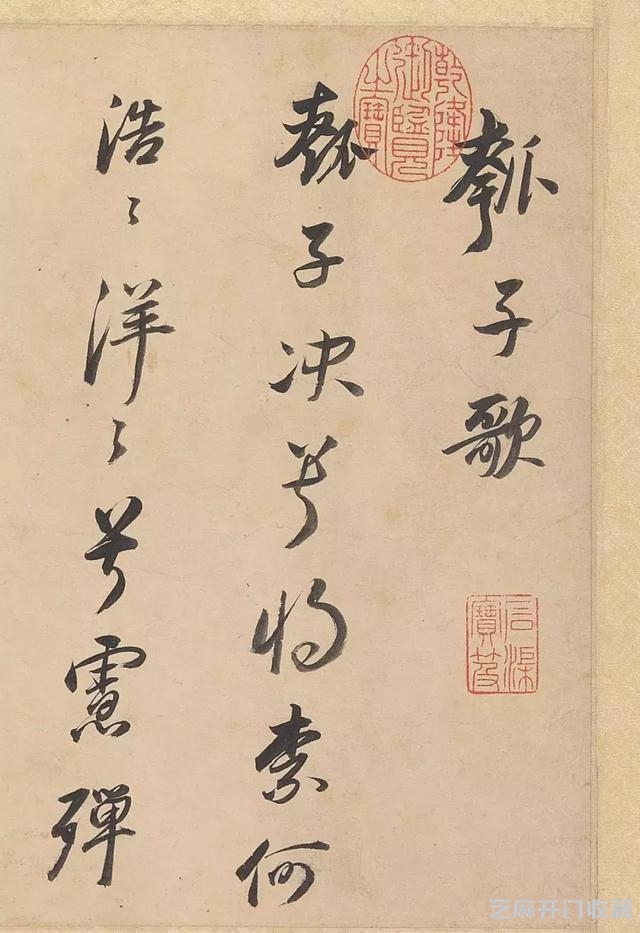 瓠子歌
瓠子决兮將柰何
浩〻洋〻兮慮殫
乾隆御覽之寶
石渠寶笈
芝麻开门收藏